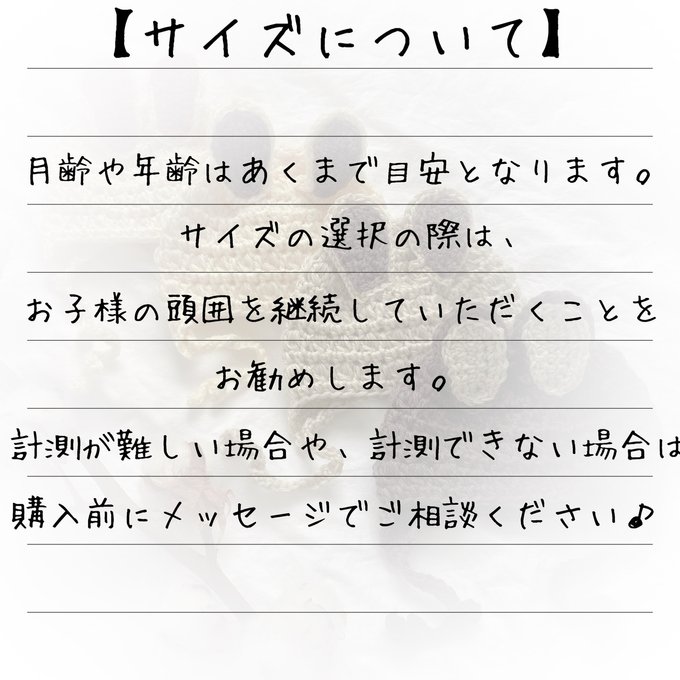 【サイズについて】
月齢や年齢はあくまで目安となります。
サイズの選択の際は、
お子様の頭囲を継続していただくことを
お勧めします。
計測が難しい場合や、計測できない場合は
購入前にメッセージでご相談ください♪